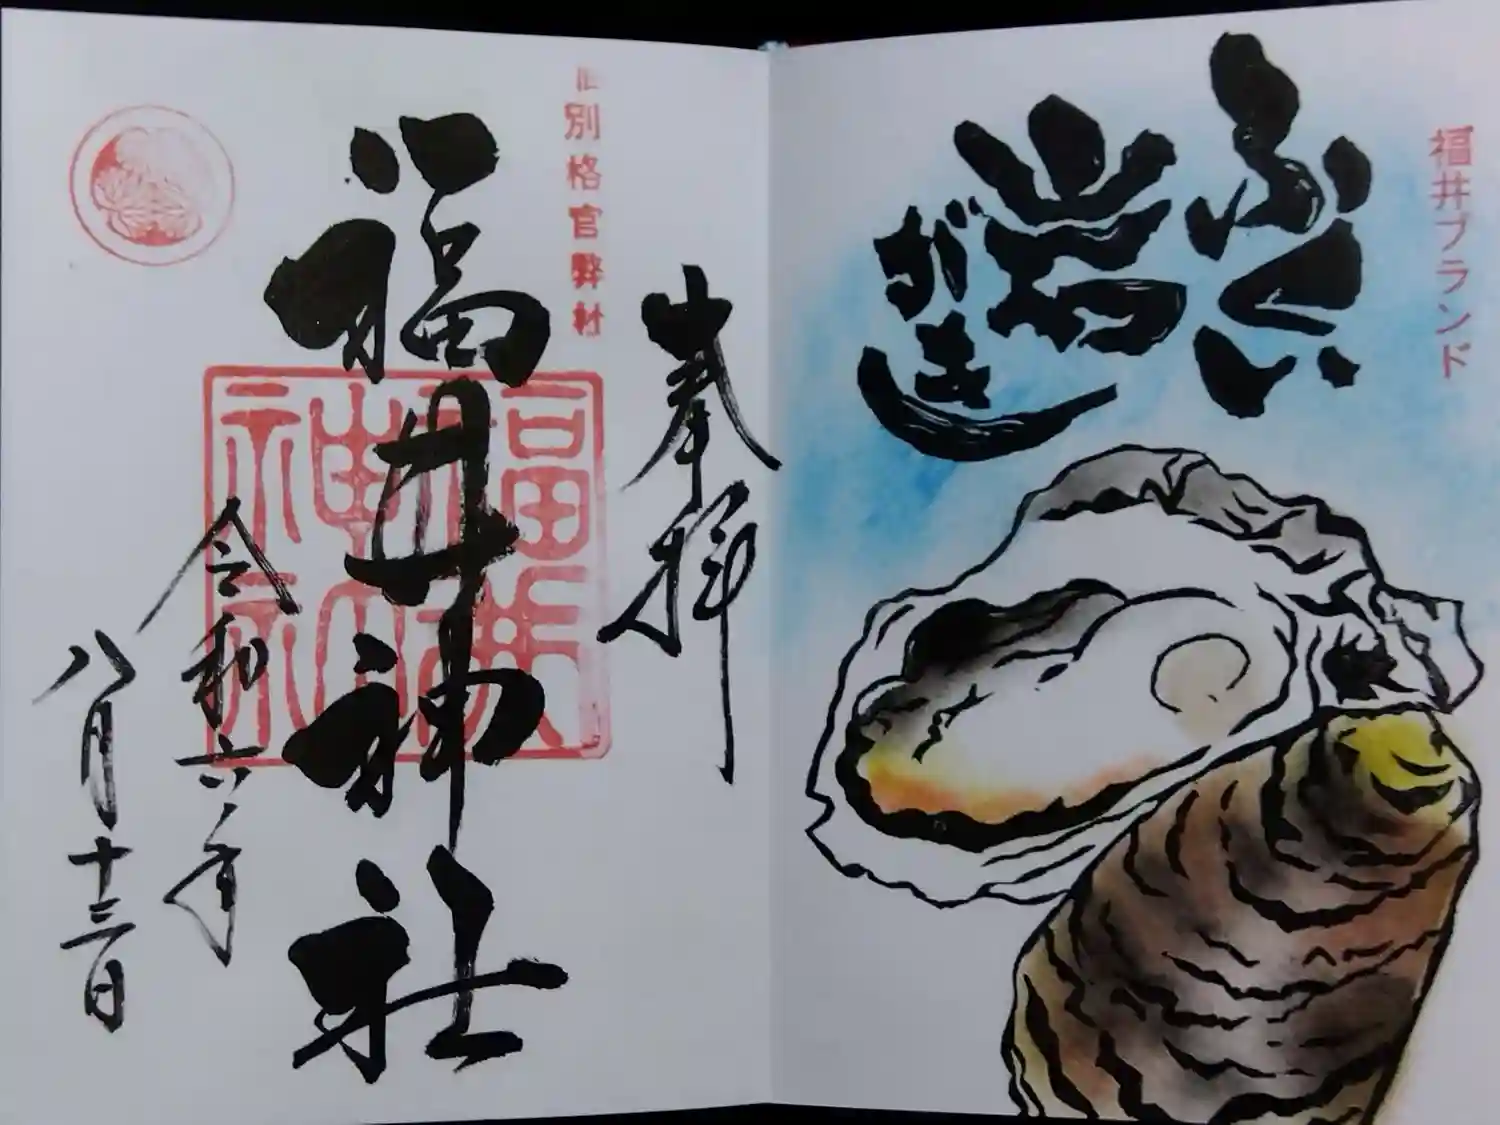 福井ブランド
ふくい
岩
がき
奉拝
旧別格官弊社
福井神社
福井神社
令和六年
八月十三日